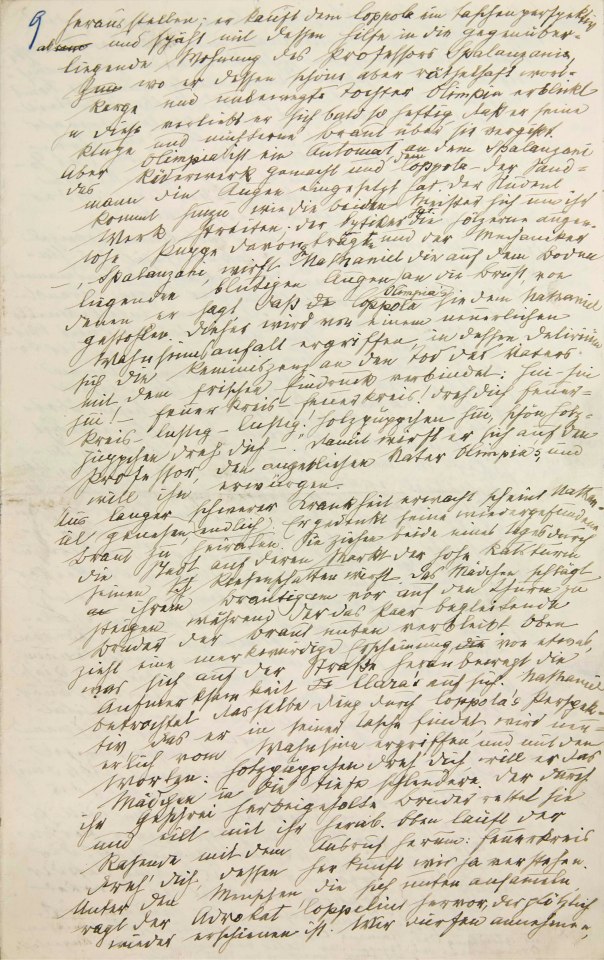 9 herausstellen; er kauft dem Coppola ein Taschenperspektiv
ab und späht mit dessen Hilfe in die gegenüber-
liegende Wohnung des Professors Spalanzani
wo er dessen schöne aber rätselhaft wort-
karge und unbewegte Tochter Olimpia erblickt
In diese verliebt er sich bald so heftig, daß er seine
kluge und nüchterne Braut über sie vergißt.
Aber Olimpia ist ein Automat, an dem Spalanzani
das Räderwerk gemacht und dem Coppola – der Sand-
mann die Augen eingesetzt hat. Der Student
kommt hinzu wie die beiden Meister sich um ihr
Werk streiten; der Optiker die hölzerne augen-
lose Puppe davonträgt und der Mechaniker
Spalanzani, wirft Nathaniel die auf dem Boden
liegenden blutigen Augen an die Brust, von
denen er sagt daß sie Coppola dem Nathaniel
Olimpia's
gestohlen. Dieser wird von einem neuerlichen
Wahnsinnsanfall ergriffen, in dessen Delirium
sich die Reminiszenz an den Tod des Vaters
mit dem frischen Eindruck verbindet: Hui – hui
hui! – Feuerkreis – Feuerkreis! dreh dich Feuer-
kreis – lustig – lustig! Holzpüppchen hui, schön Holz-
püppchen dreh dich –. Damit wirft er sich auf den
Professor, den angeblichen Vater Olimpia's, und
will ihn erwürgen.
Aus langer schwerer Krankheit erwacht scheint Nathan-
iel genesen endlich. Er gedenkt seine wiedergefundene
Braut zu heiraten. Sie ziehen beide eines Tages durch
die Stadt auf deren Markt der hohe Ratsturm
seinen Riesenschatten wirft. Das Mädchen schlägt
ihrem Bräutigam vor auf den Thurm zu
steigen während der das Paar begleitende
Bruder der Braut unten verbleibt. Oben
zieht eine merkwürdige Erscheinung von etwas,
was sich auf der Straße heranbewegt die
Aufmerksamkeit Clara's auf sich. Nathaniel
betrachtet dasselbe Ding durch Coppola's Perspek-
tiv das er in seiner Tasche findet wird neu-
erlich vom Wahnsinn ergriffen und mit den
Worten: Holzpüppchen dreh dich will er das
Mädchen in die Tiefe schleudern. Der durch
ihr Geschrei herbeigeholte Bruder rettet sie
und eilt mit ihr herab. Oben läuft der
Rasende mit dem Ausruf herum: Feuerkreis
dreh' dich, dessen Herkunft wir ja verstehen.
Unter den Menschen die sich unten ansammeln
ragt der Advokat Coppelius hervor, der plötzlich
wieder erschienen ist. Wir dürfen annehmen,